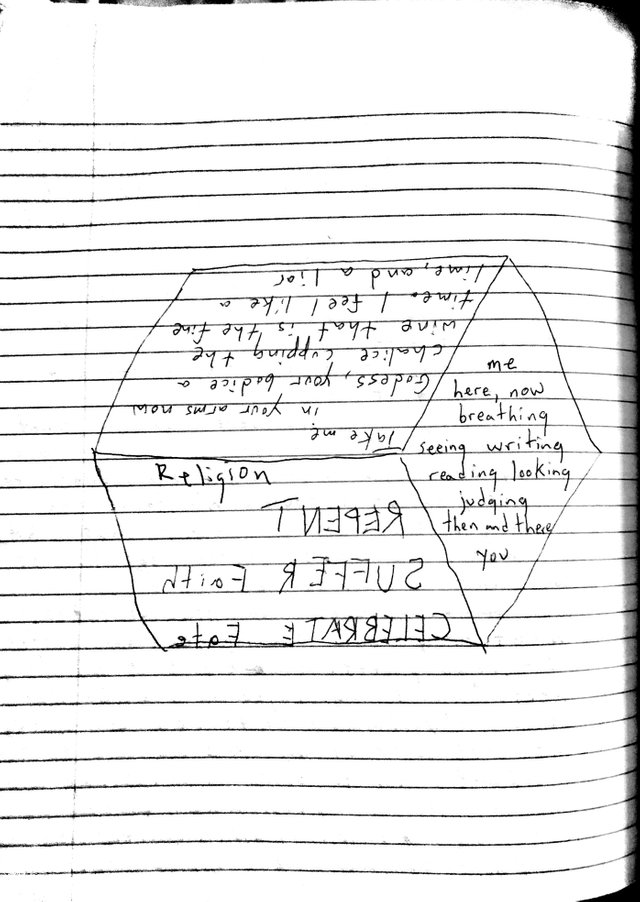 Take me
in your arms now
Godess, your bodice a
chalice cupping the
wine that is the fine
time. I feel like a
lime, and a liar
me
here, now
breathing
seeing writing
reading looking
judging
then and there
you
Religion
REPENT
SUFFER Faith
CELEBRATE Fate